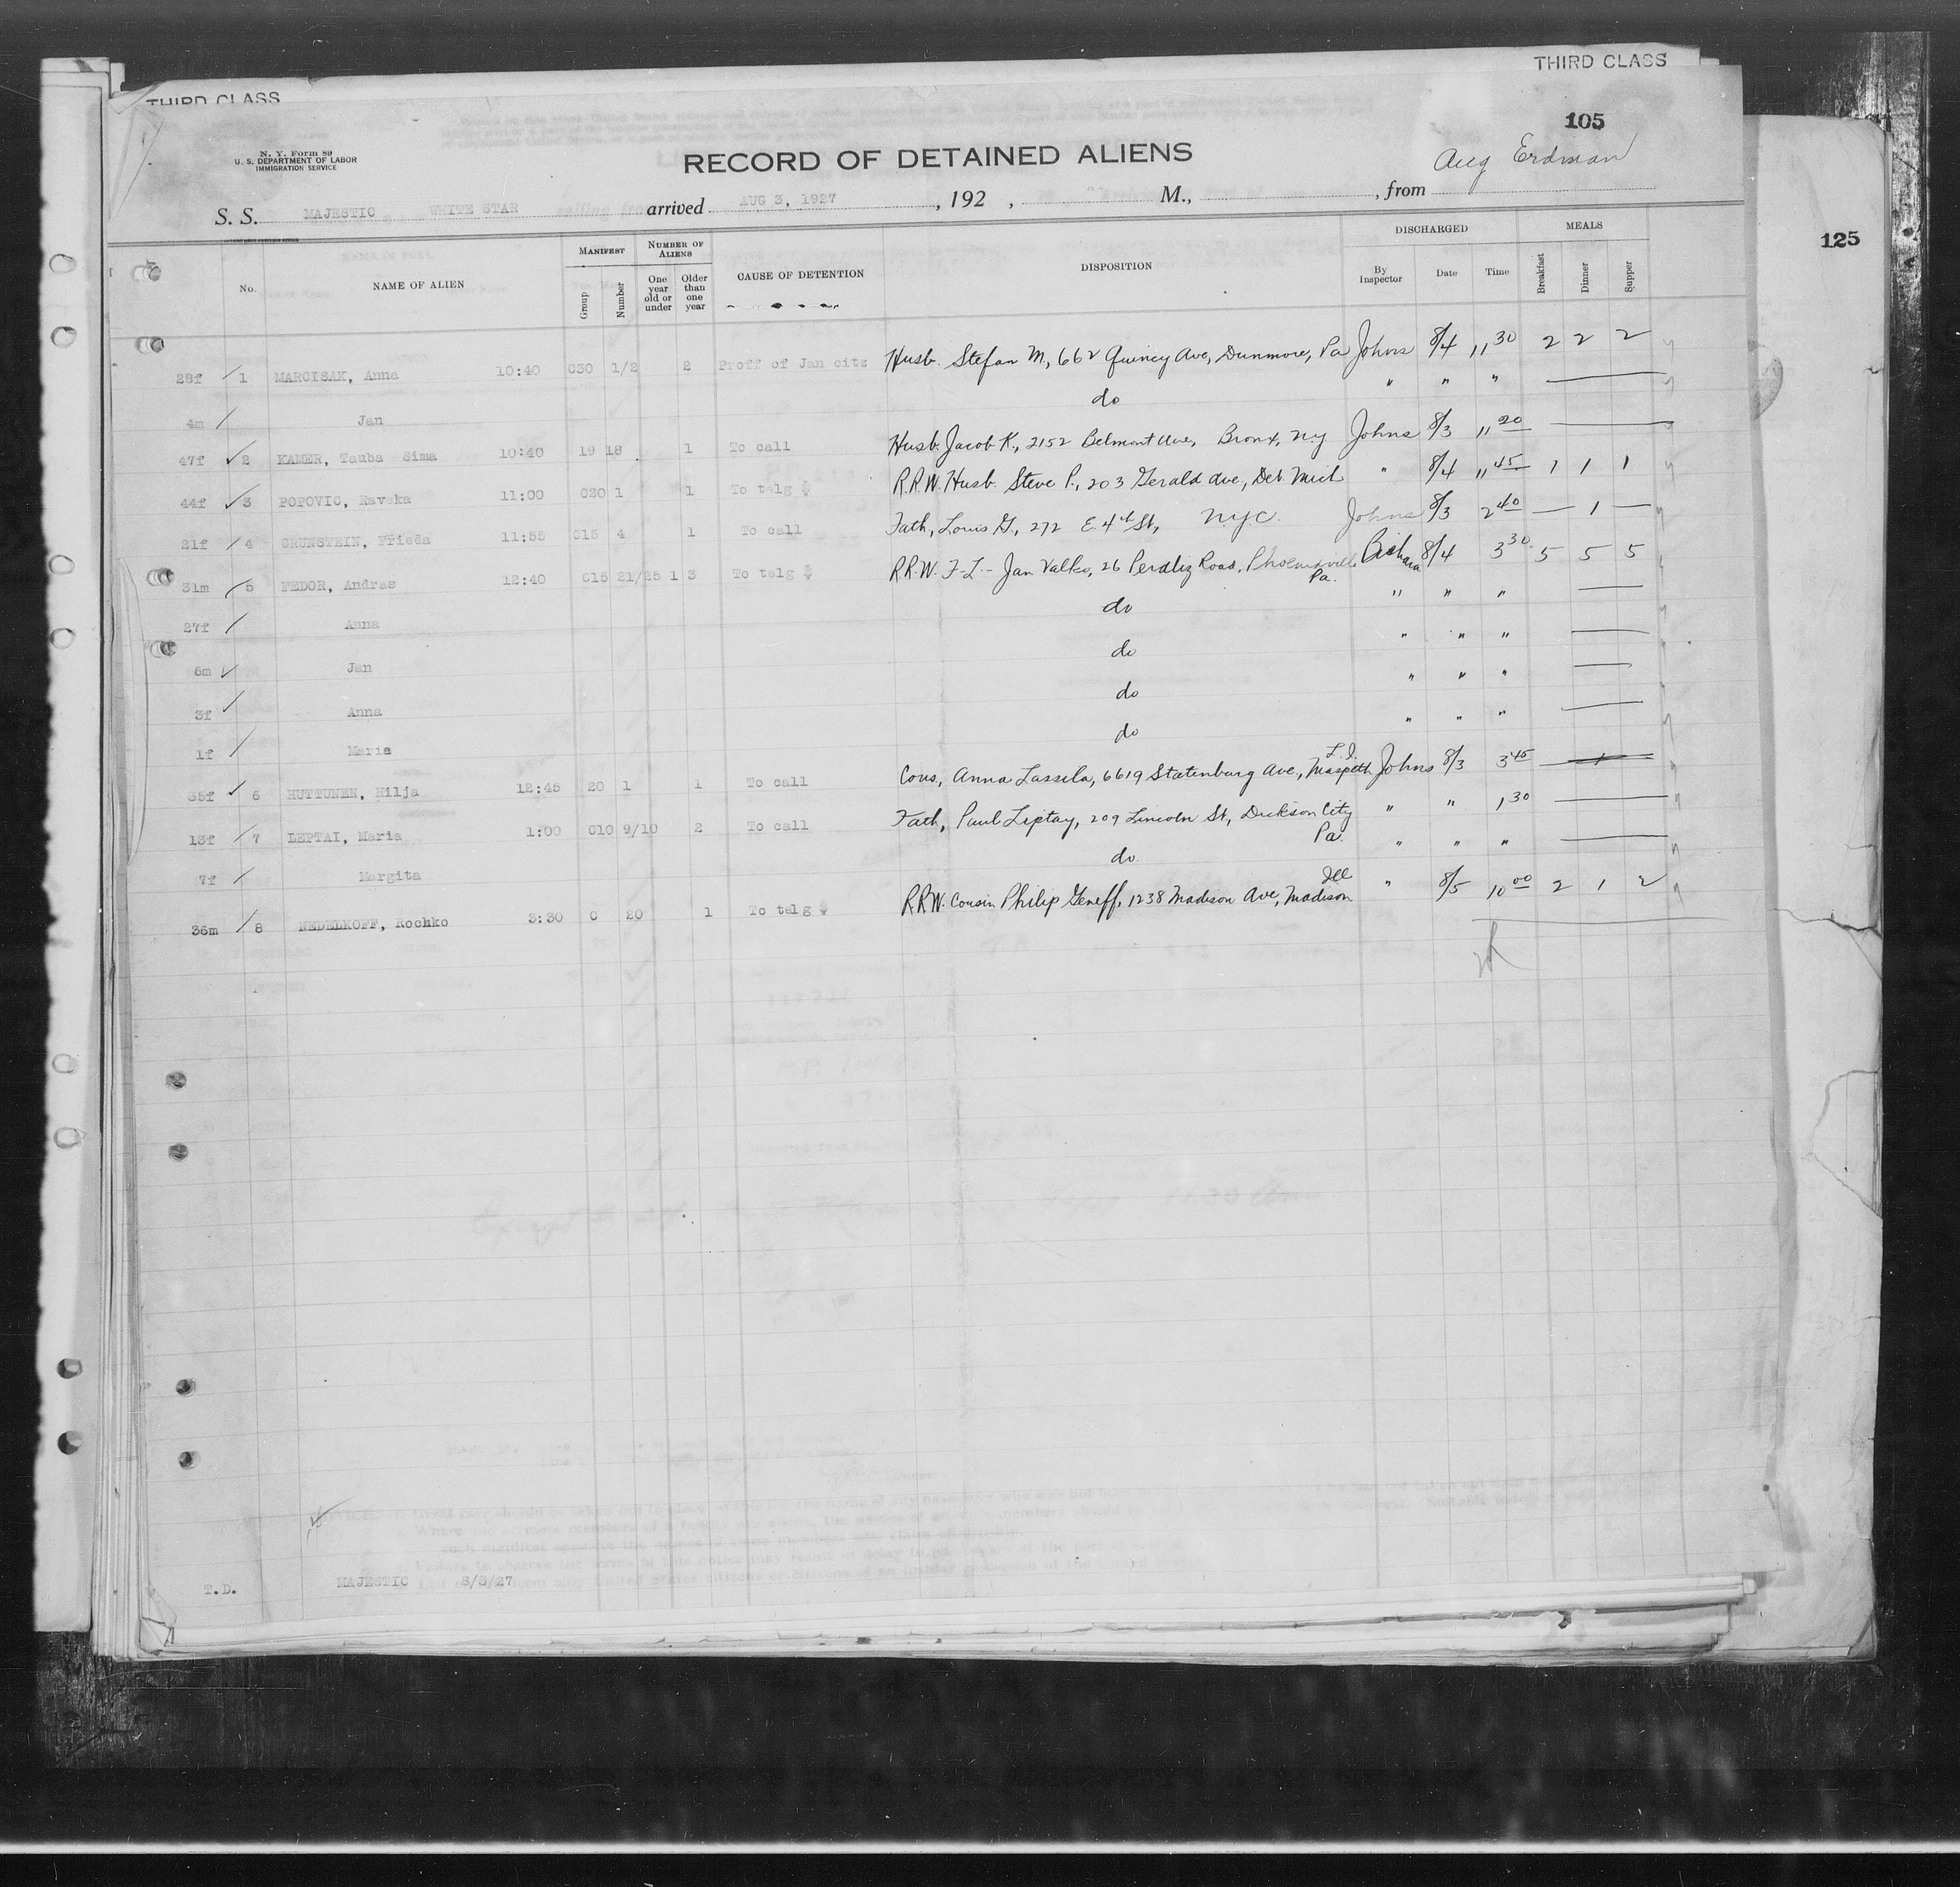 THIRD CLASS
THIRD CLASS
105
125
N. Y. Form 89
U. S. DEPARTMENT OF LABOR
IMMIGRATION SERVICE
RECORD OF DETAINED ALIENS
Aug Erdman
S. S. MAJESTIC WHITE STAR arrived AUG 3, 1927, 192 , M., , from
No. NAME OF ALIEN MANIFEST Group Number NUMBER OF ALIENS One year old or under Older than one year CAUSE OF DETENTION DISPOSITION DISCHARGED By Inspector Date Time MEALS Breakfast Dinner Supper
28f 1 MARCISAK, Anna 10:40 C30 1/2 2 Proff of Jan citz Husb. Stefan M, 662 Quincy Ave, Dunmore, Pa Johns 8/4 11 30 2 2 2
4m Jan do " " "
47f 2 KAMER, Tauba Sima 10:40 19 18 1 To call Husb. Jacob K., 2152 Belmont Ave, Bronx, NY Johns 8/3 11 20
44f 3 POPOVIC, Raveka 11:00 C20 1 1 To telg $ R.R.W. Husb. Steve P., 203 Gerald Ave, Det. Mich " 8/4 11 45 1 1 1
21f 4 GRUNSTEIN, Frieda 11:55 C15 4 1 To call Fath, Louis G., 272 E. 4th St, N.Y.C. Johns 8/3 2 40 — 1 —
31m 5 FEDOR, Andras 12:40 C15 21/25 1 3 To telg $ R.R.W. F-L.- Jan Valko, 26 Road, Phoenixville Pa. 8/4 3 30 5 5 5
27f Anna do " " "
5m Jan do " " "
3f Anna do " " "
1f Maria do " " "
35f 6 HUTTUNEN, Hilja 12:45 20 1 1 To call Cous, Anna Lassila, 6619 Statenburg Ave, Maspeth L.I. Johns 8/3 3 45
13f 7 LEPTAI, Maria 1:00 C10 9/10 2 To call Fath, Paul Liptay, 209 Lincoln St, Dickson City Pa. " " 1 30
7f Margita do " " "
36m 8 NEDELKOFF, Rochko 3:30 C 20 1 To telg $ R.R.W. Cousin Philip Geneff, 1238 Madison Ave, Madison Ill " 8/5 10 00 2 1 2
T.D. MAJESTIC 8/3/27